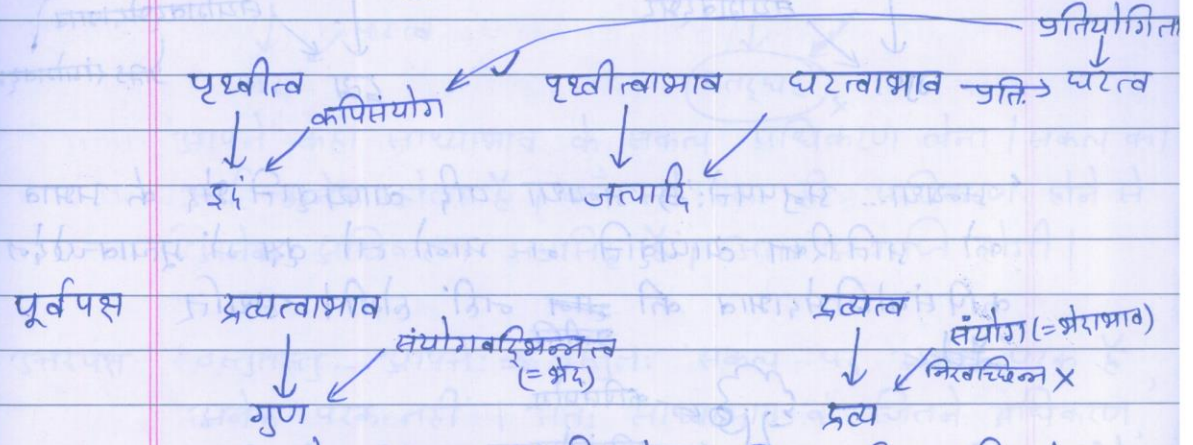 प्रतियोगिता
पृथ्वीत्व पृथ्वीत्वाभाव घटत्वाभाव प्रति. घटत्व
कपिसंयोग
इदं जलादि
पूर्वपक्ष द्रव्यत्वाभाव द्रव्यत्व
संयोगवद्भिन्नत्व संयोग (=भेदाभाव)
(=भेद) निरवच्छिन्न X
गुण द्रव्य